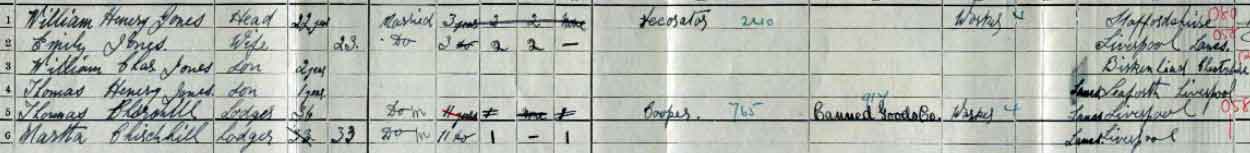 1 William Henry Jones Head 22 yrs Married 3 years 2 2 none Decorator 240 Worker Staffordshire 050
2 Emily Jones. Wife 23. Do 3 do 2 2 — Liverpool Lancs.
3 William Chas Jones Son 2 yrs Birkenhead Cheshire
4 Thomas Henry Jones. Son 1 year Lancs Seaforth Liverpool
5 Thomas Churchill Lodger 36 Do m 11 years 1 none 1 Cooper. 765 Canned Goods Co. Worker Lancs Liverpool 058
6 Martha Churchill Lodger 33 33 Do m 11 do 1 — 1 Lancs Liverpool